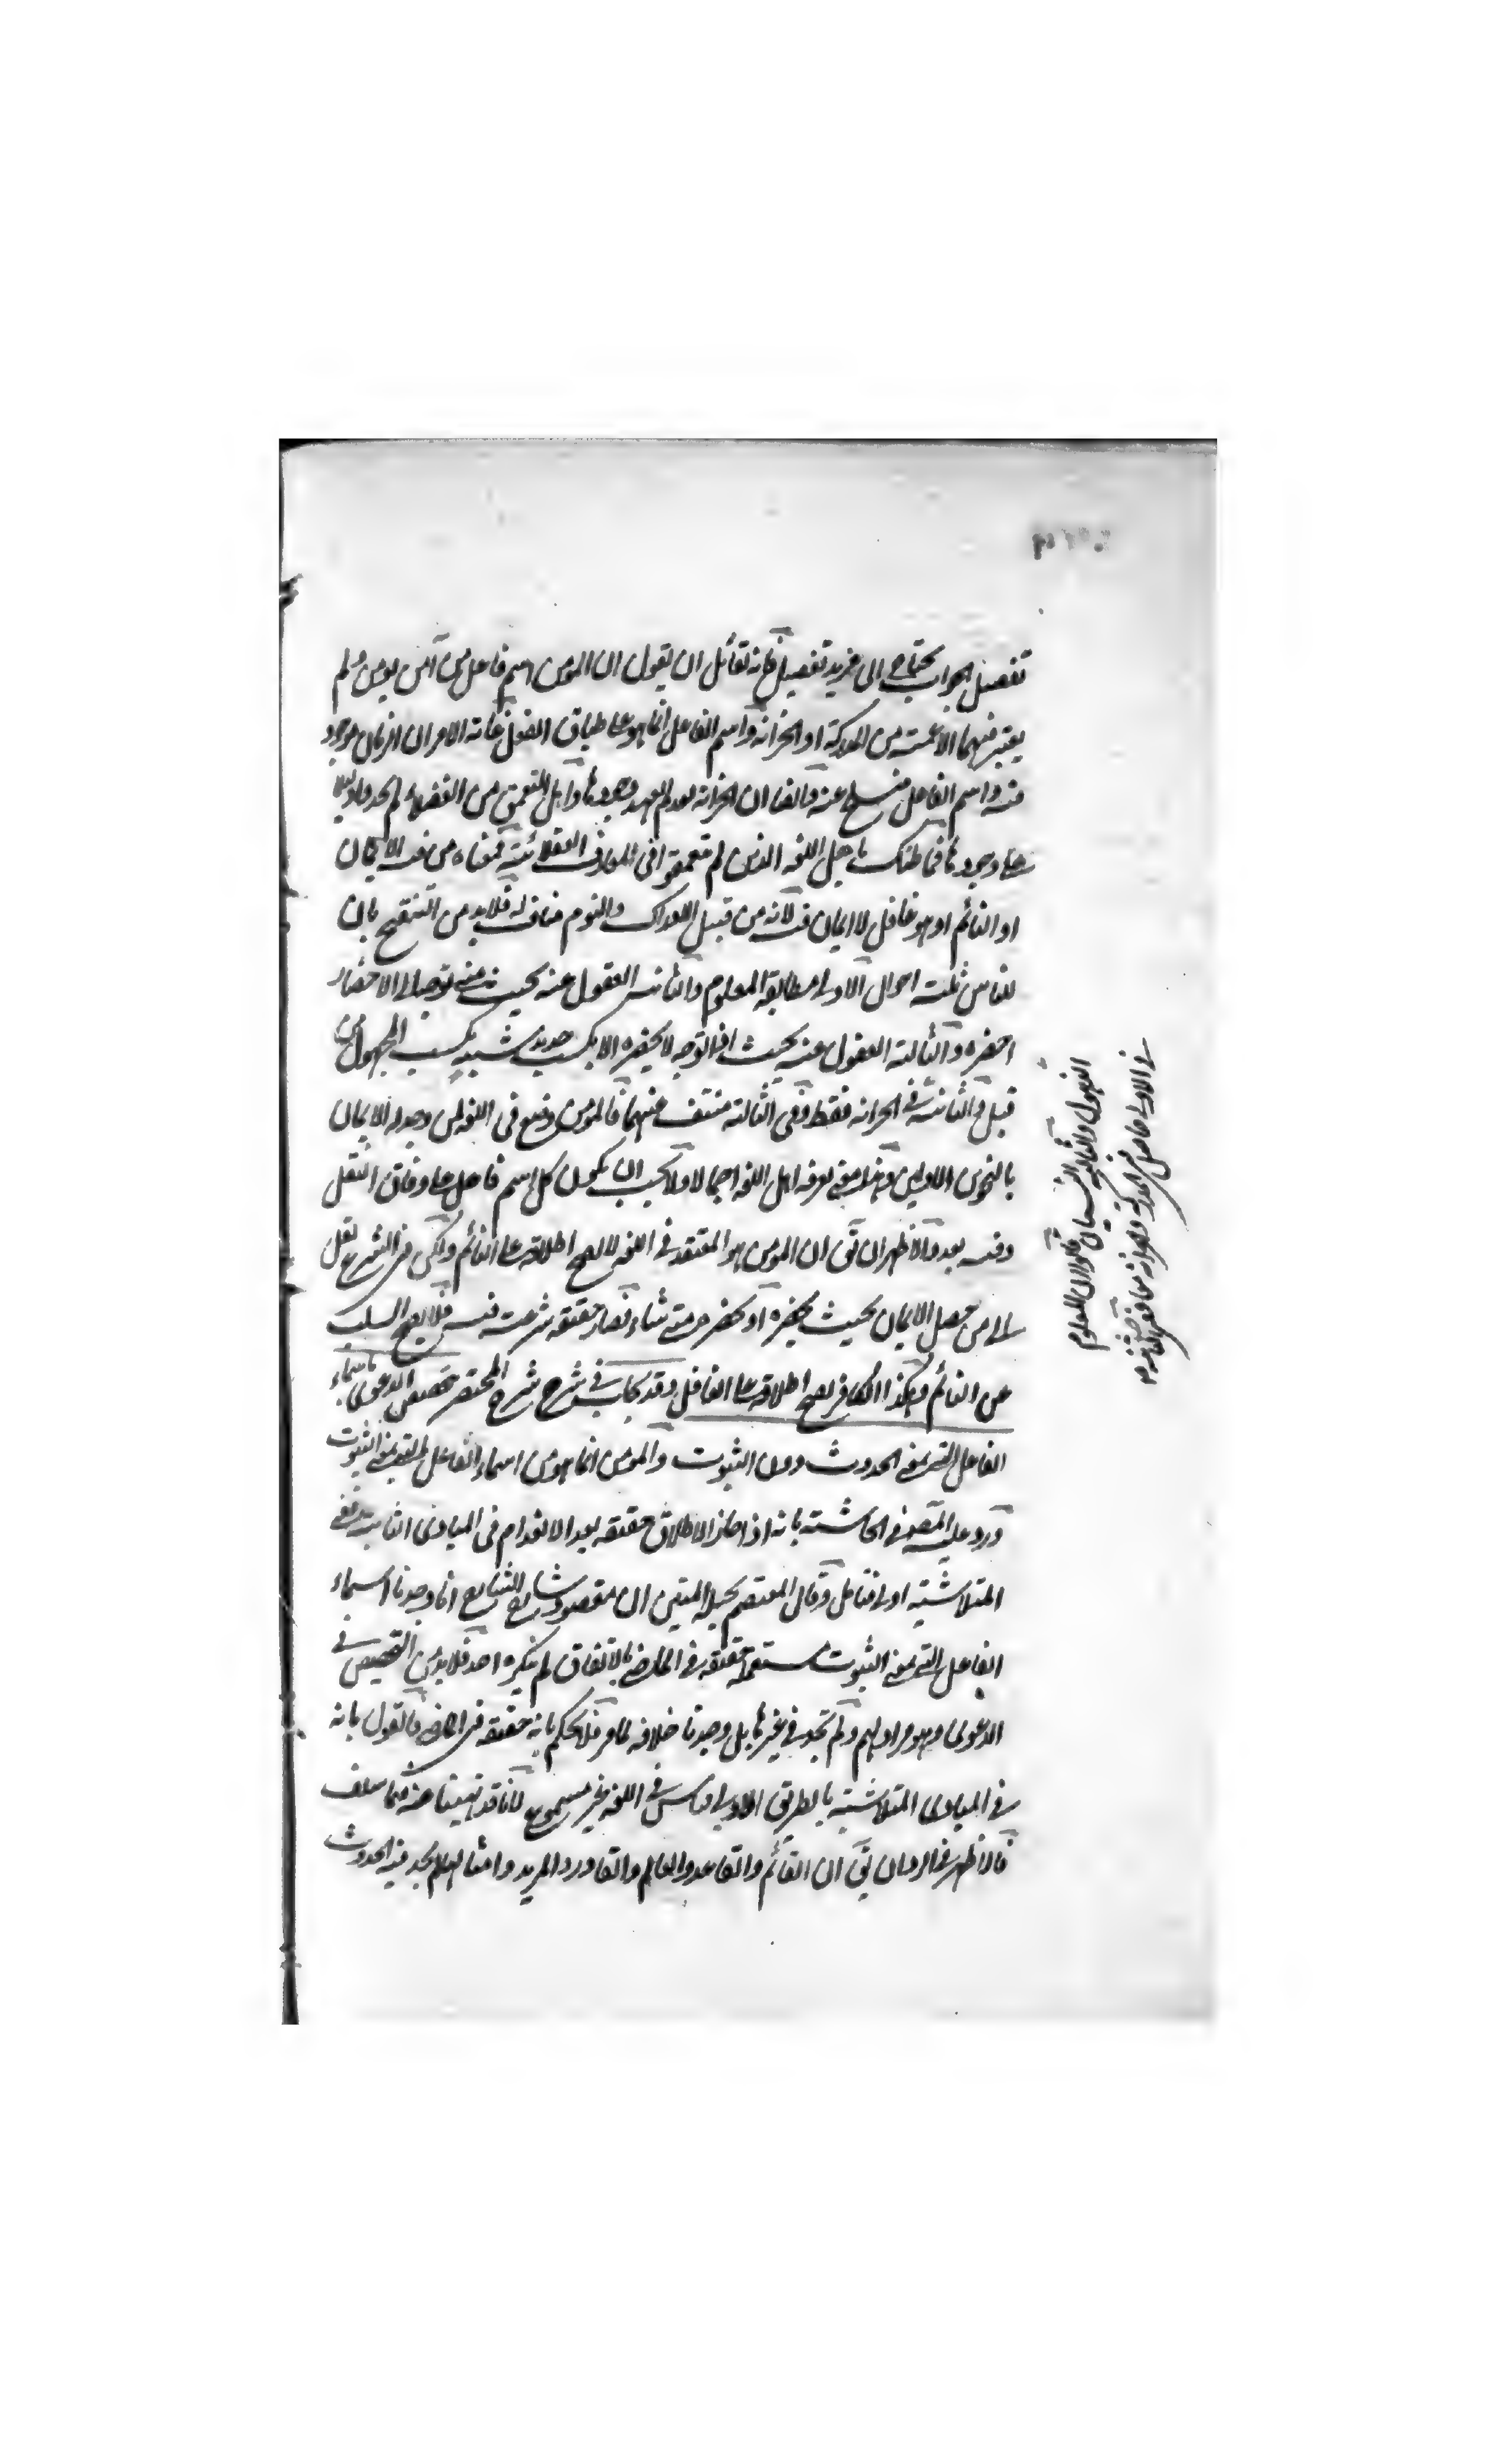 تفصيل الجواب يحتاج الى مزيد تفصيل فانه لقائل ان يقول ان المومن اسم فاعل من آمن يومن ولم
يعتبر فيهما الاعمية من المدركة او الخزانة واسم الفاعل انما هو على طباق الفعل غاية الامر ان الزمان موجود
فيه واسم الفاعل منسلخ عنه وايضا ان الخزانة لم وجودها واهل التعمق من الفضلاء لم يجدوا دليلا
على وجودها فما ظنك باهل اللغة الذين لم يتعمقوا في المعارف العقلائية فمعناه من الايمان
او النائم او هو غافل لا ايمان فيه لانه من قبيل الادراك والنوم مناف له فلا بد من التنقيح بان
للناس ثلث احوال الاولى مطابقة المعلوم والثانية العقول عنه بحيث توجه الى الاحضار
احضره والثالثة العقول عنه بحيث اذا توجه لا يحضره الا بكسب جديد شبيه بكسب المجهول من
قبل والثانية في الخزانة فقط وفي الثالثة منتف عنهما فالمومن وضع في اللغة لمن وجد له الايمان
بالنحوين الاولين وهذا معنى يعرفه اهل اللغة اجمالا ولا يجب ان يكون كل اسم فاعل على وفاق الفعل
وفيه بعد والاظهر ان يق ان المومن هو المعتقد في اللغة لا يصح اطلاقه على النائم ولكن في الشرع نقل
الى من حصل الايمان بحيث يحضره او يحضر متى شاء فصار حقيقة شرعية فيه فلا يصح السلب
عن النائم وهكذا الكافر يصح اطلاقه على الغافل وقد يجاب في شرح شرح المختصر تخصيص الدعوى باسماء
الفاعل التي بمعنى الحدوث دون الثبوت والمومن انما هو من اسماء الفاعل التي بمعنى الثبوت
ورد عليه المصنف في الحاشية بانه اذا جاز الاطلاق حقيقة بعد الانعدام في المبادى الثابتة ففي
المتلاشية اولى فتامل وقال المعتصم بحبله المتين ان مقصود شارح الشرح انا وجدنا اسماء
الفاعل التي بمعنى الثبوت مستعملة حقيقة في الماضي بالاتفاق لم ينكره احد فلا بد من التخصيص في
الدعوى وهو مرادهم ولم نجد في غيرها بل وجدنا خلافه لما مر فلا نحكم بانه حقيقة في الماضي فالقول بانه
في المبادى المتلاشية بالطريق الاولى قياس في اللغة غير مسموع لانا قد نهينا عنه فيما سلف
فالاظهر في الرد ان يق ان القائم والقاعد والعالم والقادر والمريد وامثالها لم نجد فيه الحدوث
في الاولى حاصل في المدركة والخزانة معا